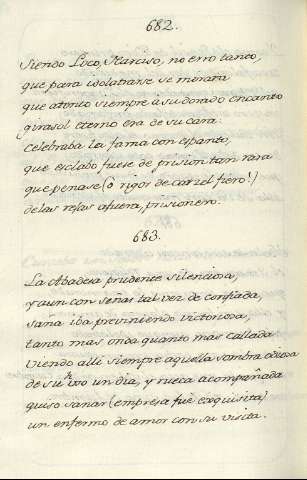 682.
Siendo Loco, Narciso, no erró tanto,
que para idolatrarse se mirara
que atento siempre a su dorado encanto
girasol eterno era de su cara.
Celebraba la fama con espanto,
que esclabo fuese de prision tan rara
que penase (ó rigor de carcel fiero!)
de las rejas afuera, prisionero.
683.
La Abadesa prudente silenciosa,
y aun con señas tal vez de confiada,
saña iba previniendo victoriosa,
tanto mas onda quanto mas callada
Viendo alli siempre aquella sombra odiosa
de su un dia, y nueca acompañada
quiso sanar (empresa fue exquisita)
un enfermo de amor con su visita.